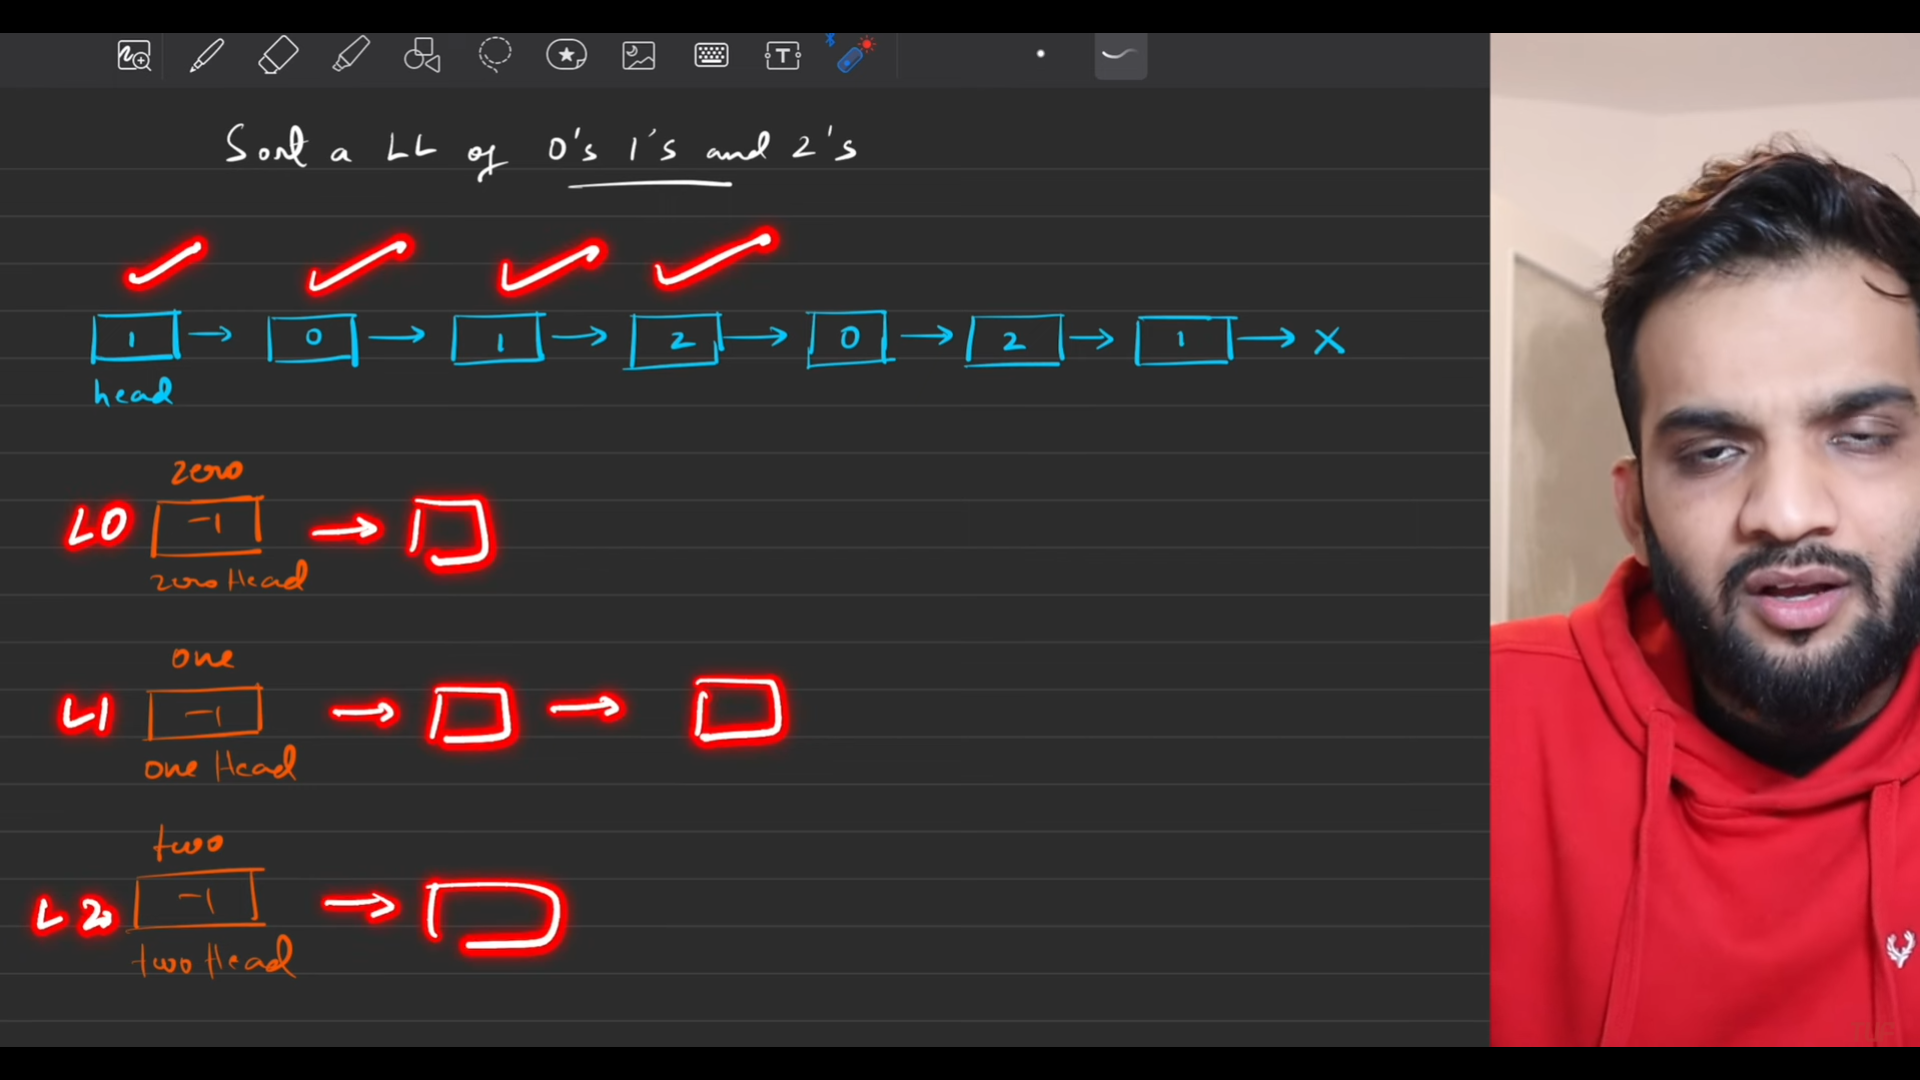 Sort a LL of 0's 1's and 2's
1 → 0 → 1 → 2 → 0 → 2 → 1 → X
head
zero
L0 -1 →
zero Head
one
L1 -1 → →
one Head
two
L2 -1 →
two Head